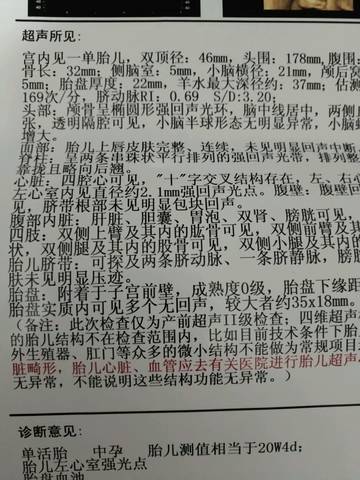 超声所见:
宫内见一单胎儿, 双顶径: 46mm, 头围: 178mm,腹围
骨长: 32mm; 侧脑室: 5mm, 小脑横径: 21mm, 颅后窝
5mm; 胎盘厚度: 22mm, 羊水最大深径约: 37mm; 估测
169次/分, 脐动脉RI: 0.69  S/D:3.20;
头部: 颅骨呈椭圆形强回声光环, 脑中线居中, 两侧
张, 透明隔腔可见, 小脑半球形态无明显异常, 小脑
增大。
面部: 胎儿上唇皮肤完整、连续, 未见明显回声中断
脊柱: 呈两条串珠状平行排列的强回声光带, 排列整
靠拢且略向后翘。
心脏: 四腔心可见, "十"字交叉结构存在, 左、右
左心室内见直径约2.1mm强回声光点。腹壁: 腹壁回
见, 脐带根部未见明显包块回声。
腹部内脏: 肝脏、胆囊、胃泡、双肾、膀胱可见,
四肢: 双侧上臂及其内的肱骨可见, 双侧前臂及其
状, 双侧腿及其内的股骨可见, 双侧小腿及其内
胎儿脐带: 可探及两条脐动脉、一条脐静脉, 脐
肤未见明显压迹。
胎盘: 附着于子宫前壁, 成熟度0级, 胎盘下缘距
胎盘实质内可见多个无回声, 较大者约35x18mm。
(备注: 此次检查仅为产前超声II级检查; 四维超声
的胎儿结构不在检查范围内, 比如目前技术条件下胎
外生殖器、肛门等众多的微小结构不能做为常规项目
脏畸形, 胎儿心脏、血管应去有关医院进行胎儿超声
无异常, 不能说明这些结构功能无异常。)
诊断意见:
单活胎  中孕  胎儿测值相当于20W4d;
胎儿左心室强光点
胎盘血池